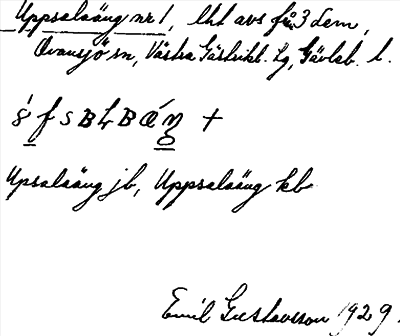 Uppsalaäng nr 1, lht avs fr. 3 dem,
Ovansjö sn, Västra Gästrikl. tg, Gävleb. l.
Upsalaäng jb, Uppsalaäng kb
Emil Gustavsson 1929.